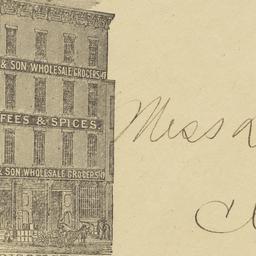 & SON WHOLESALE GROCERS
FFEES & SPICES.
& SON WHOLESALE GROCERS
Miss